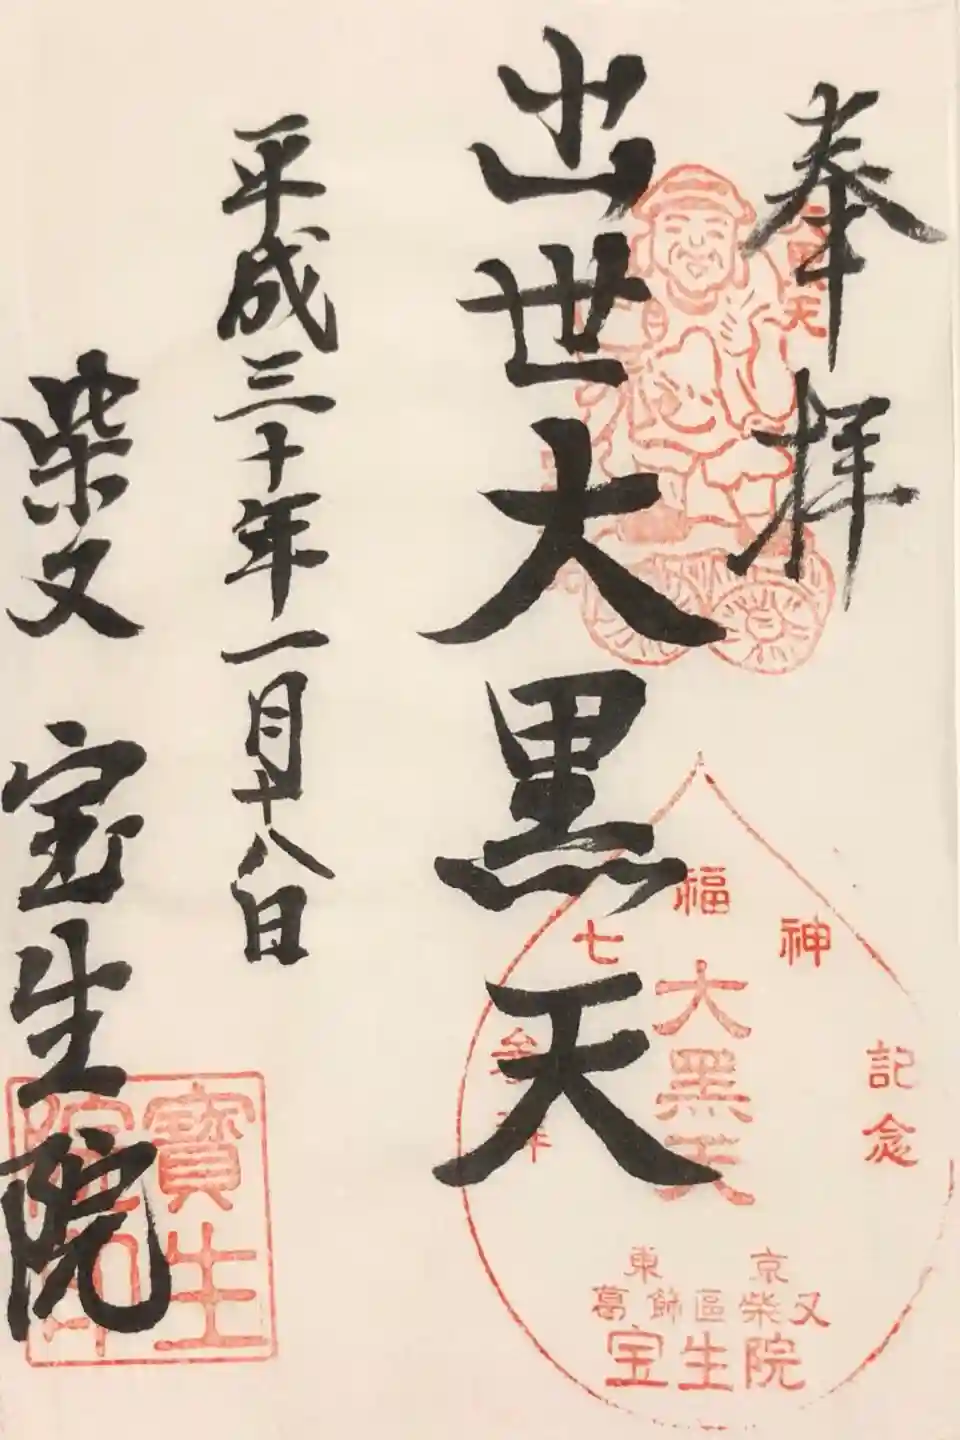 奉拝
大黒天
出世大黒天
平成三十年一月十八日
柴又 宝生院
七福神
記念
大黒天
東京
葛飾區柴又
宝生院
寶生
院印